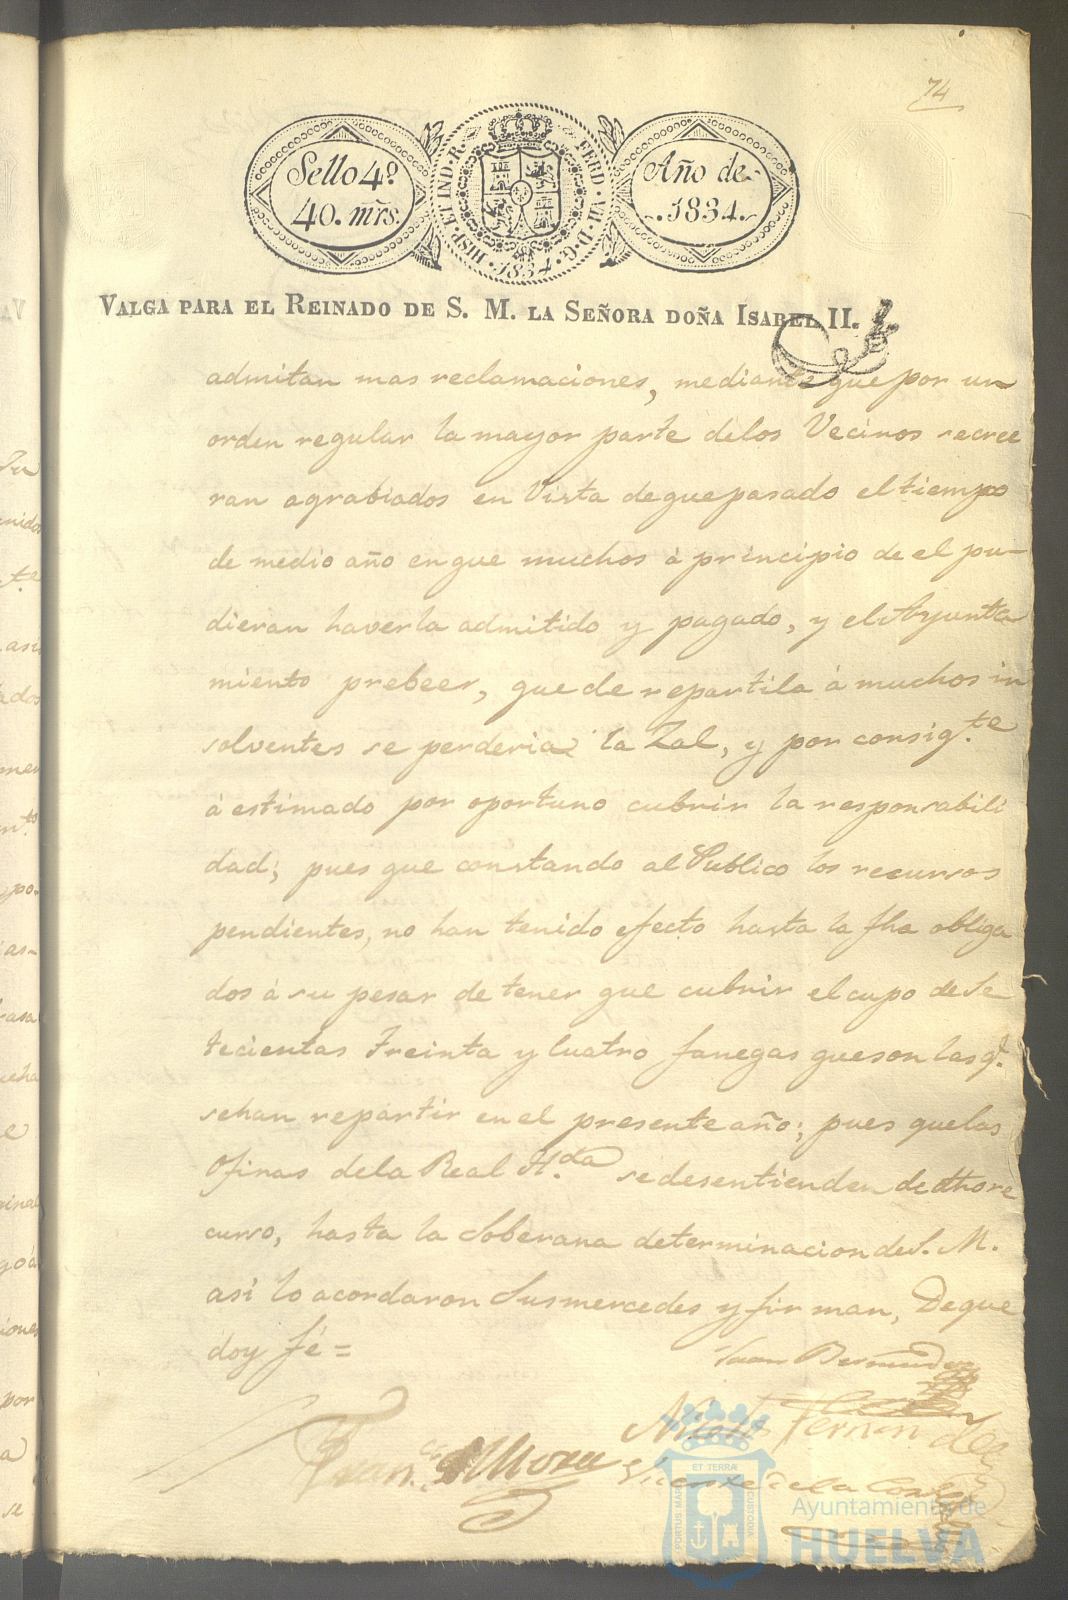 74
Sello 4º
40. mrs.
HISP. ET IND. R.
FERD. VII. D. G.
1834
Año de
1834.
VALGA PARA EL REINADO DE S. M. LA SEÑORA DOÑA ISABEL II.
admitan mas reclamaciones, mediante que por un
orden regular la mayor parte delos Vecinos secree
ran agrabiados en Vista deguepasado el tiempo
de medio año en que muchos á principio de el pu-
dieran haverla admitido y pagado, y el Ayunta
miento prebeer, que de repartila á muchos in
solventes se perderia la Zal, y por consig.te
á estimado por oportuno cubrir la responsabili
dad; pues que constando al Publico los recursos
pendientes, no han tenido efecto hasta la fha obliga
dos á su pesar de tener que cubrir el cupo de Se
tecientas Treinta y Cuatro fanegas queson las q.e
sehan repartir en el presente año; pues quelas
Ofinas dela Real H.da sedesentienden de dho re
curso, hasta la Soberana determinacion de S. M.
asi lo acordaron Susmercedes y firman, Deque
doy fé =
Juan Bermudez
Fran.co Mora
Fernandes
Vicente de la Corte
ET TERRÆ
PORTUS MARIS
CUSTODIA
Ayuntamiento de
HUELVA